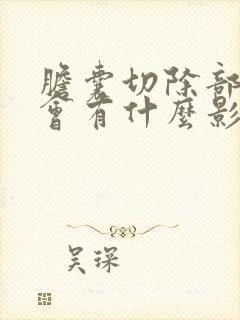 膽囊切除部
會有什麼影
吴琛